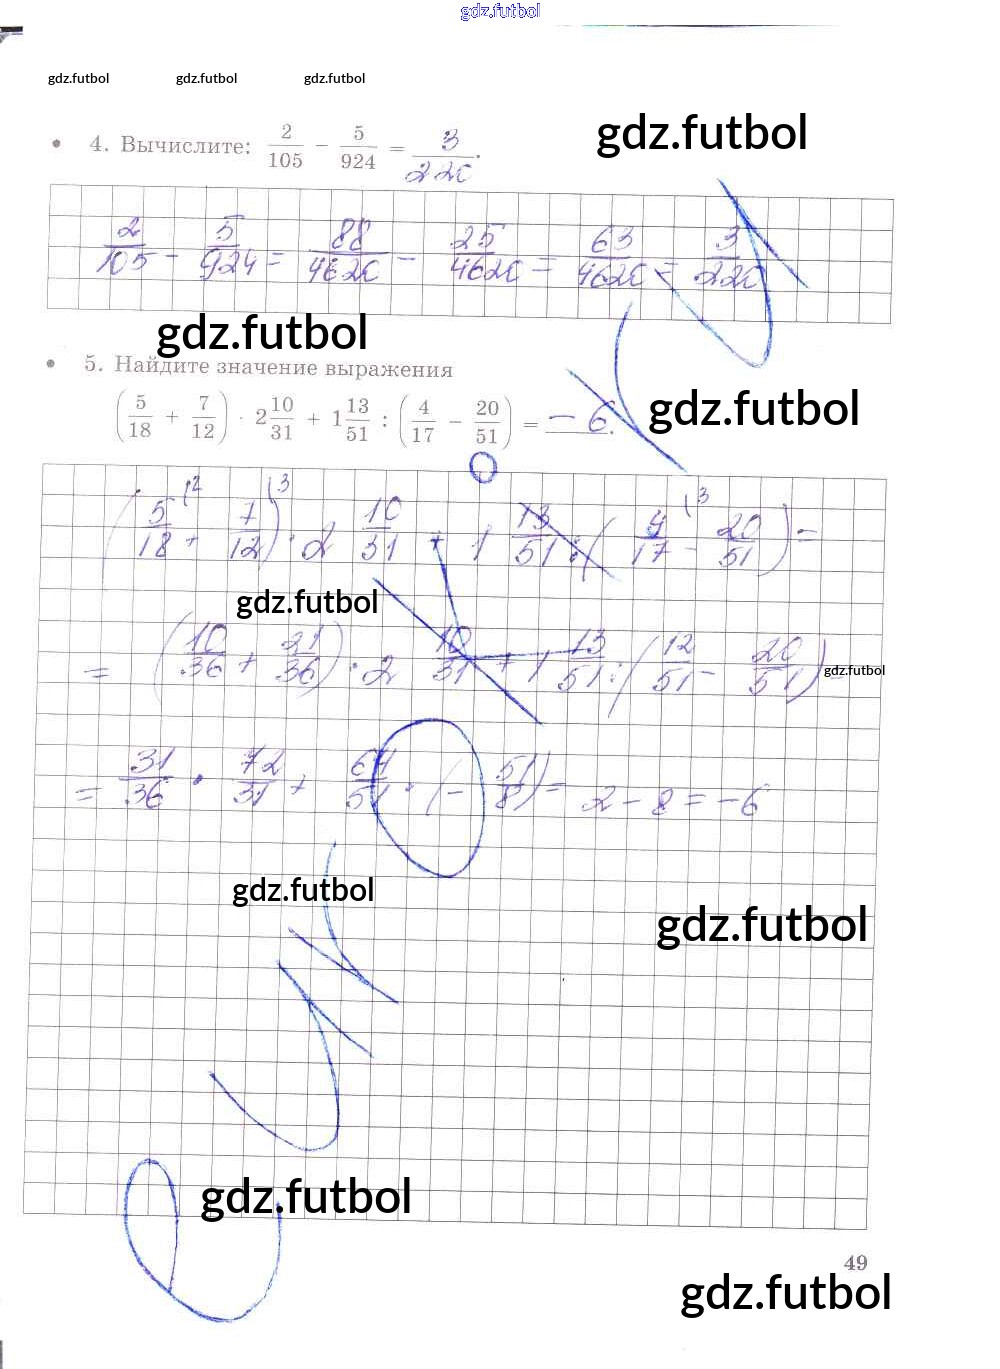 gdz.futbol
gdz.futbol gdz.futbol gdz.futbol
• 4. Вычислите: 2/105 − 5/924 = 3/220.
gdz.futbol
2/105 − 5/924 = 88/4620 − 25/4620 = 63/4620 = 3/220
gdz.futbol
• 5. Найдите значение выражения
(5/18 + 7/12) · 2 10/31 + 1 13/51 : (4/17 − 20/51) = − 6.
gdz.futbol
(5/18 \2 + 7/12 \3) · 2 10/31 + 1 13/51 : (4/17 \3 − 20/51) =
gdz.futbol
= (10/36 + 21/36) · 2 10/31 + 1 13/51 : (12/51 − 20/51) =
gdz.futbol
= 31/36 · 72/31 + 64/51 · (− 51/8) = 2 − 8 = −6
gdz.futbol
gdz.futbol
gdz.futbol
49
gdz.futbol